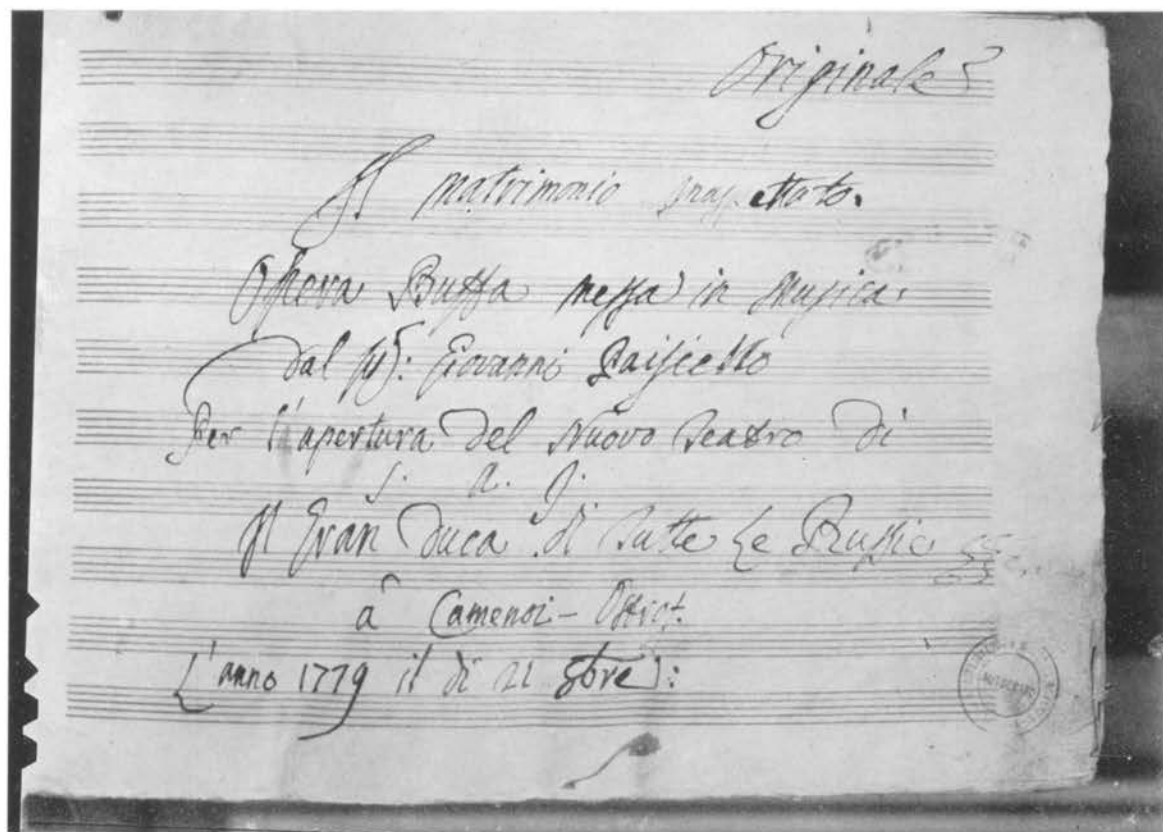 Originale
Il matrimonio inaspettato.
Opera Buffa messa in Musica
dal Sigr: Giovanni Paisiello
Per l'apertura del Nuovo Teatro di
S. A. I.
Il Gran Duca di Tutte le Russie
à Camenoi-Ostrof.
L'anno 1779 il di 21 8bre: